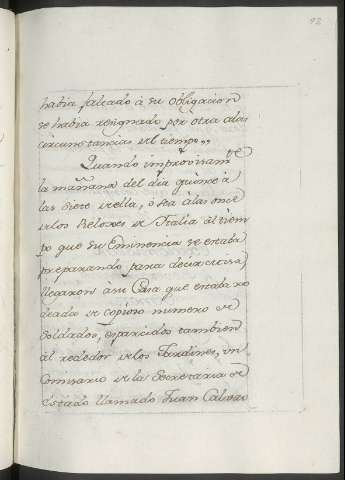 92
havia faltado à su obligacion
se havia resignado por otra a las
circunstancias del tiempo,,
Quando improvisamte
la mañana del dia quince à
las siete de ella, ò sea à las once
de los Reloxes de Italia al tiem
po que su Eminencia se estaba
preparando para decir misa,
llegaron à su Casa que estaba ro
deada de copioso numero de
Soldados, esparcidos tambien
al rededor de los Jardines, un
Comisario de la Secretaria de
Estado llamado Juan